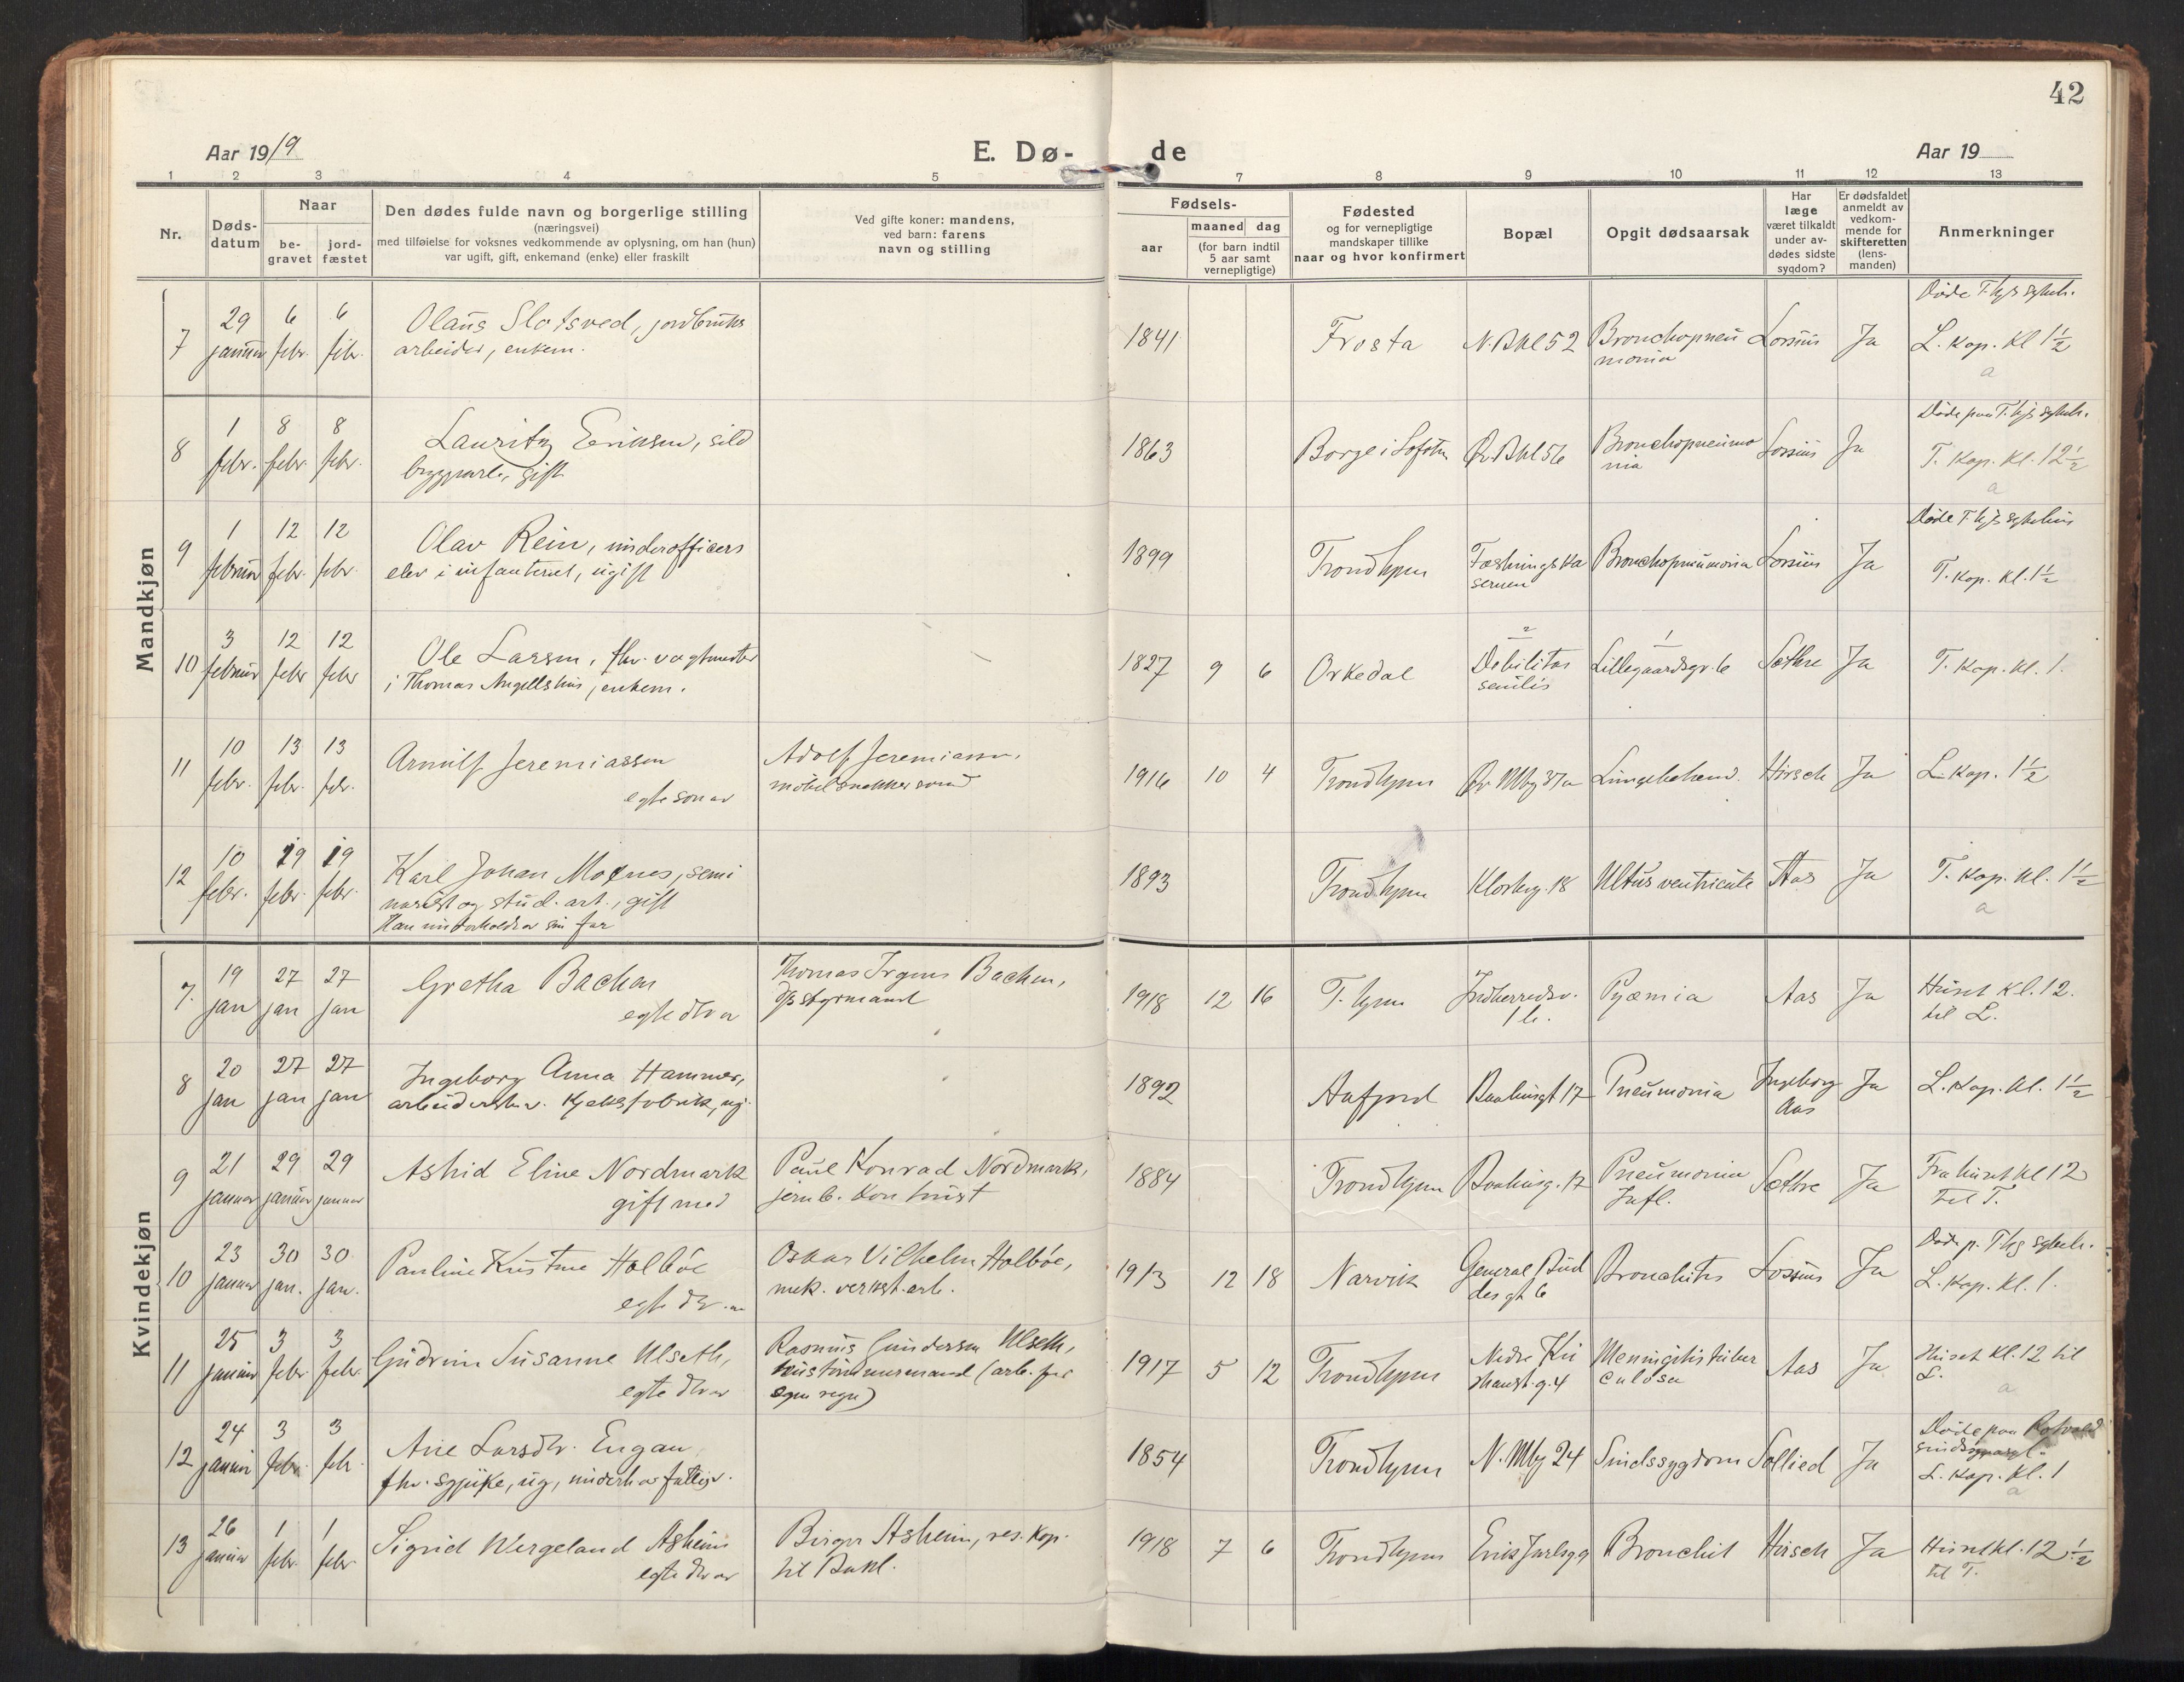 42
Aar 1919
E. Dø-
de
Aar 19
1 2 3 4 5 7 8 9 10 11 12 13
Nr.
Døds-
datum
Naar
be-
gravet
jord-
fæstet
Den dødes fulde navn og borgerlige stilling
(næringsvei)
med tilføielse for voksnes vedkommende av oplysning, om han (hun)
var ugift, gift, enkemand (enke) eller fraskilt
Ved gifte koner: mandens,
ved barn: farens
navn og stilling
Fødsels-
aar
maaned dag
(for barn indtil
5 aar samt
vernepligtige)
Fødested
og for vernepligtige
mandskaper tillike
naar og hvor konfirmert
Bopæl
Opgit dødsaarsak
Har
læge
været tilkaldt
under av-
dødes sidste
sygdom?
Er dødsfaldet
anmeldt av
vedkom-
mende for
skifteretten
(lens-
manden)
Anmerkninger
Mandkjøn
7
29 januar
6 febr.
6 febr.
Olaus Slotsved, jordbruks
arbeider, enkem.
1841
Frosta
N. Bkl 52
Bronchopneu
monia
Lossius
Ja
Døde T.hjs sykeh.
L. Kap. Kl 1½
a
8
1 febr.
8 febr.
8 febr.
Lauritz Eriksen, sild
bryggearb., gift
1863
Borge i Lofoten
Øv. Bkl 56
Bronchopneumo
nia
Lossius
Ja
Døde paa T.hjs sykeh.
T. Kap. Kl. 12½
a
9
1 februar
12 febr.
12 febr.
Olav Rein, underofficers
elev i infanteriet, ugift
1899
Trondhjem
Fæstningska
sernen
Bronchopneumonia
Lossius
Ja
Døde T.hjs sykehus
T. Kap. Kl. 1½
10
3 februar
12 febr
12 febr
Ole Larsen, fhv. vagtmester
i Thomas Angells hus, enkem.
1827 9 6
Orkedal
2
Debilitas
senilis
1
Lillegaardsgr. 6
Sæthre
Ja
T. Kap. Kl. 1.
11
10 febr.
13 febr.
13 febr.
Arnulf Jeremiassen
egte søn av
Adolf Jeremiassen,
møbelsnekkersvend
1916 10 4
Trondhjem
Øv Mbg 37a
Lungebetænd.
Hirsch
Ja
L. Kap. 1½
12
10 febr.
19 febr.
19 febr.
Karl Johan Moxnes, semi
narist og stud. art., gift
Han underholdes av sin far
1893
Trondhjem
Klosterg. 18
Ulcus ventriculi
Aas
Ja
T. Kap. Kl. 1½
a
Kvindekjøn
7.
19 jan
27 jan
27 jan
Gretha Bachen
egte dtr av
Thomas Irgens Bachen,
D/S styrmand
1918 12 16
T.hjem
Indherredsv.
1b.
Pyæmia
Aas
Ja
Huset Kl. 12.
til L.
8
20 jan
27 jan
27 jan
Ingeborg Anna Hammer,
arbeiderske v. Kjeksfabrik, ug.
1892
Aafjord
Baahusgt 17
Pneumonia
Ingeborg
Aas
Ja
L. Kap. Kl. 1½
9
21 januar
29 januar
29 januar
Astrid Eline Nordmark
gift med
Paul Konrad Nordmark,
jernb. kontorist
1884
Trondhjem
Baahusg. 17
Pneumonia
Infl.
Sæthre
Ja
Fra huset kl 12
til T.
10
23 januar
30 jan.
30 jan.
Pauline Kristine Holbøe
egte dtr. av
Oskar Vilhelm Holbøe,
mek. verkst. arb.
1913 12 18
Narvik
General Bud
des gt 6
Bronchitis
Lossius
Ja
Døde p. T.hjs sykeh.
L. Kap. Kl. 1.
11
25 januar
3 febr.
3 febr.
Gudrun Susanne Ulseth,
egte dtr av
Rasmus Gundersen Ulseth,
hustømmermand (arb. for
egen regn)
1917 5 12
Trondhjem
Nedre Kri
stianst. g. 4
Meningitis tuber
culosa
Aas
Ja
Huset Kl. 12 til
L.
a
12
24 januar
3 febr.
3 febr
Ane Larsdtr. Engan
fhv. sypike, ug, underh av fattigv.
1854
Trondhjem
N. Mbg 24
Sindssygdom
Sollied
Ja
Døde paa Rotvold
sindssygeasyl.
L. Kap. Kl. 1
a
13
26 januar
1 febr.
1 febr
Sigrid Wergeland Asheim
egte dtr av
Birger Asheim, res. Kap.
til Bakl.
1918 7 6
Trondhjem
Erik Jarlsg 9
Bronchit
Hirsch
Ja
Huset kl. 12½
til T.